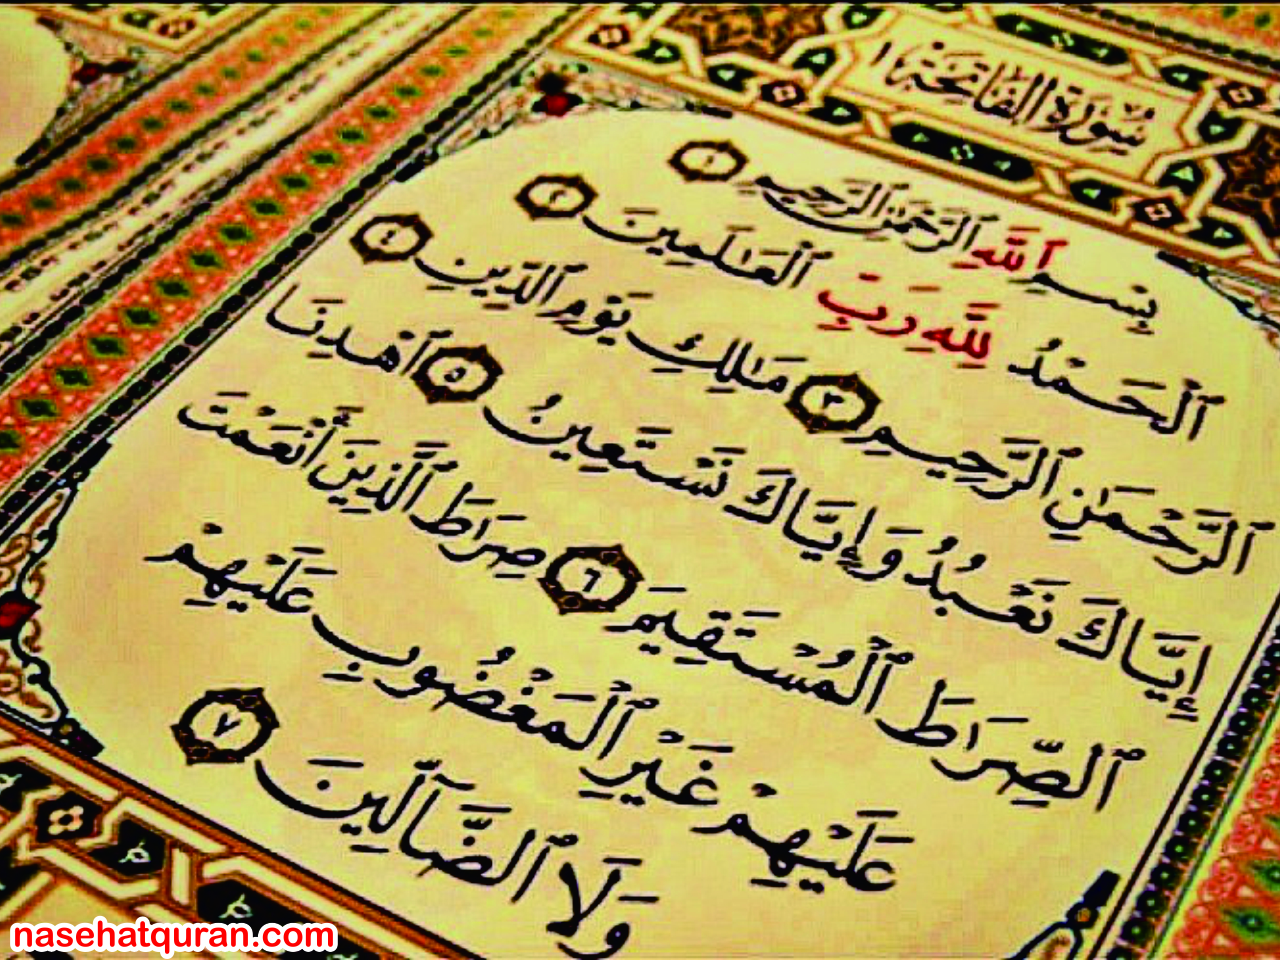 سُورَةُ الْفَاتِحَةِ ١
بِسْمِ ٱللَّهِ ٱلرَّحْمَٰنِ ٱلرَّحِيمِ ١
ٱلْحَمْدُ لِلَّهِ رَبِّ ٱلْعَٰلَمِينَ ٢
ٱلرَّحْمَٰنِ ٱلرَّحِيمِ ٣ مَٰلِكِ يَوْمِ ٱلدِّينِ ٤
إِيَّاكَ نَعْبُدُ وَإِيَّاكَ نَسْتَعِينُ ٥ ٱهْدِنَا
ٱلصِّرَاطَ ٱلْمُسْتَقِيمَ ٦ صِرَاطَ ٱلَّذِينَ أَنْعَمْتَ
عَلَيْهِمْ غَيْرِ ٱلْمَغْضُوبِ عَلَيْهِمْ
وَلَا ٱلضَّآلِّينَ ٧
nasehatquran.com